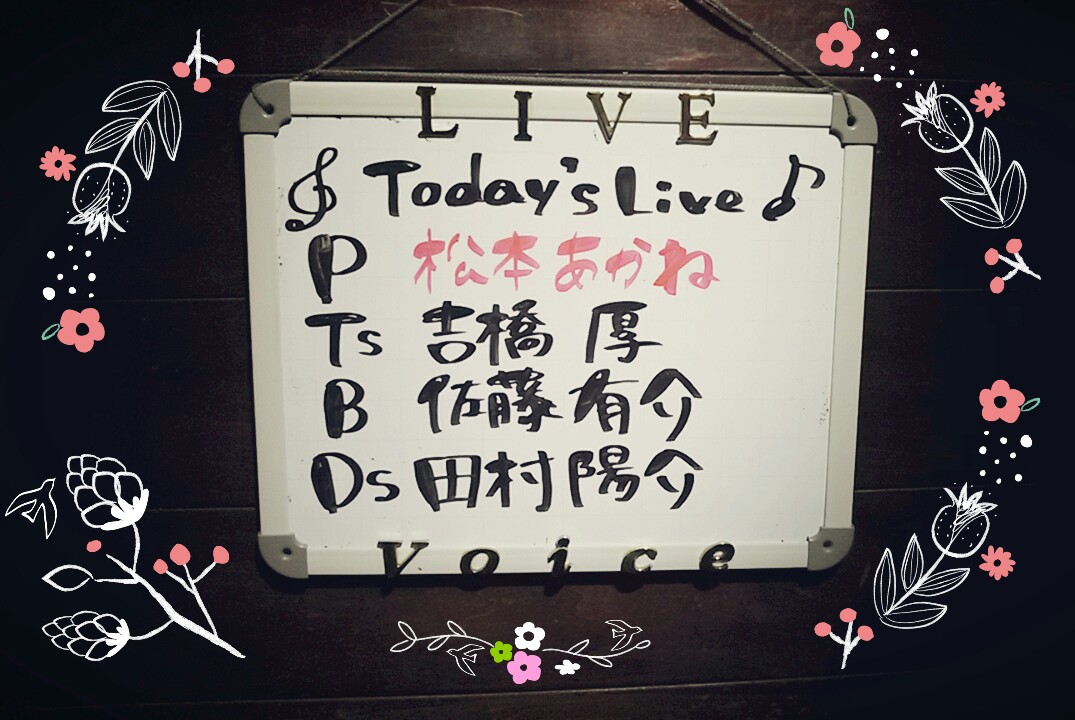 LIVE
Today's Live
P 松本あかね
Ts 吉橋 厚
B 佐藤有介
Ds 田村陽介
Voice